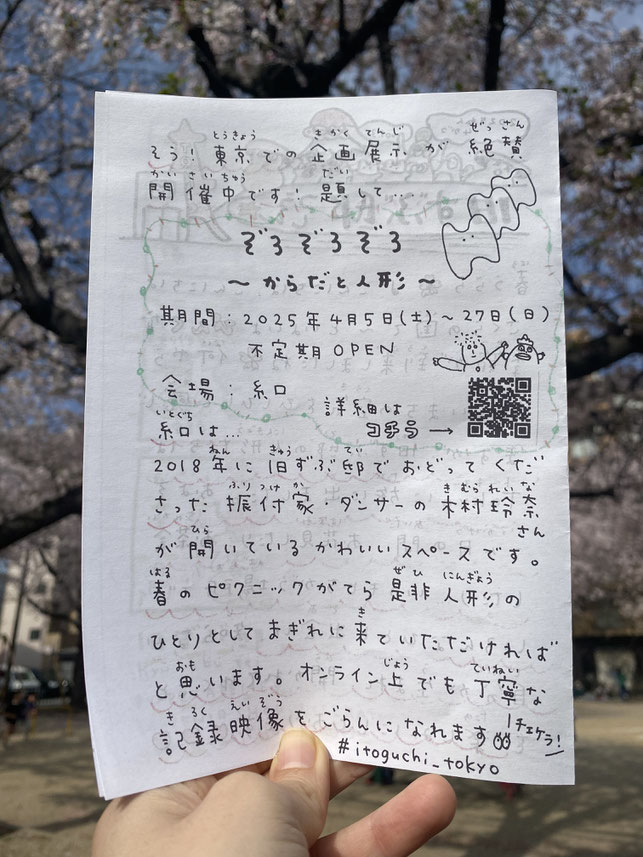 そう！東京での企画展示が絶賛
開催中です！題して…
ぞろぞろぞろ
～からだと人形～
期間：2025年4月5日(土)～27日(日)
不定期OPEN
会場：糸口
詳細は
コチラ→
糸口は…
2018年に旧ずぶ邸でおどってくだ
さった振付家・ダンサーの木村玲奈さん
が開いているかわいいスペースです。
春のピクニックがてら是非人形の
ひとりとしてまぎれに来ていただければ
と思います。オンライン上でも丁寧な
記録映像をごらんになれます
チェケラ！
#itoguchi_tokyo